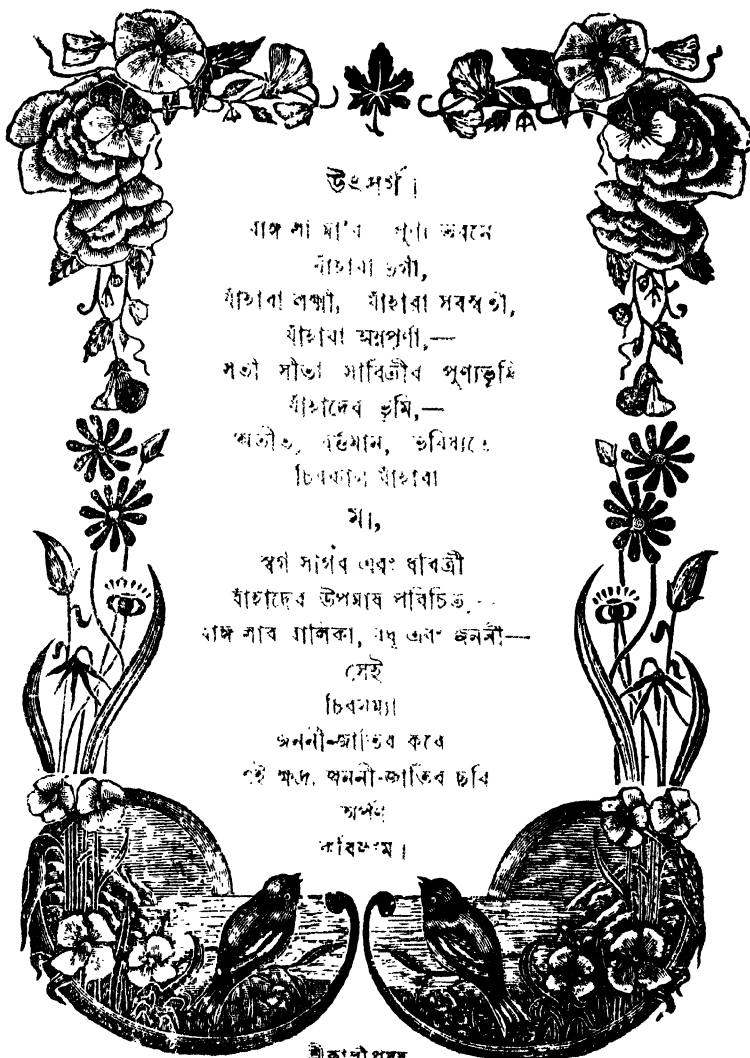 উৎসর্গ।
বাঙ্গলা মা'র পুণ্য ভবনে
যাঁহারা
যাঁহারা লক্ষ্মী, যাঁহারা সরস্বতী,
যাঁহারা অন্নপূর্ণা,—
সতী সীতা সাবিত্রীর পুণ্যভূমি
যাঁহাদের ভূমি,—
অতীত, বর্ত্তমান, ভবিষ্যতে
চিরকাল যাঁহারা
মা,
স্বর্গ সাগর এবং ধরিত্রী
যাঁহাদের উপমায় পরিচিত,—
বাঙ্গলার বালিকা, বধূ এবং জননী—
সেই
চিরনম্যা
জননী-জাতির করে
এই ক্ষুদ্র জননী-জাতির ছবি
অর্পণ
করিলাম।